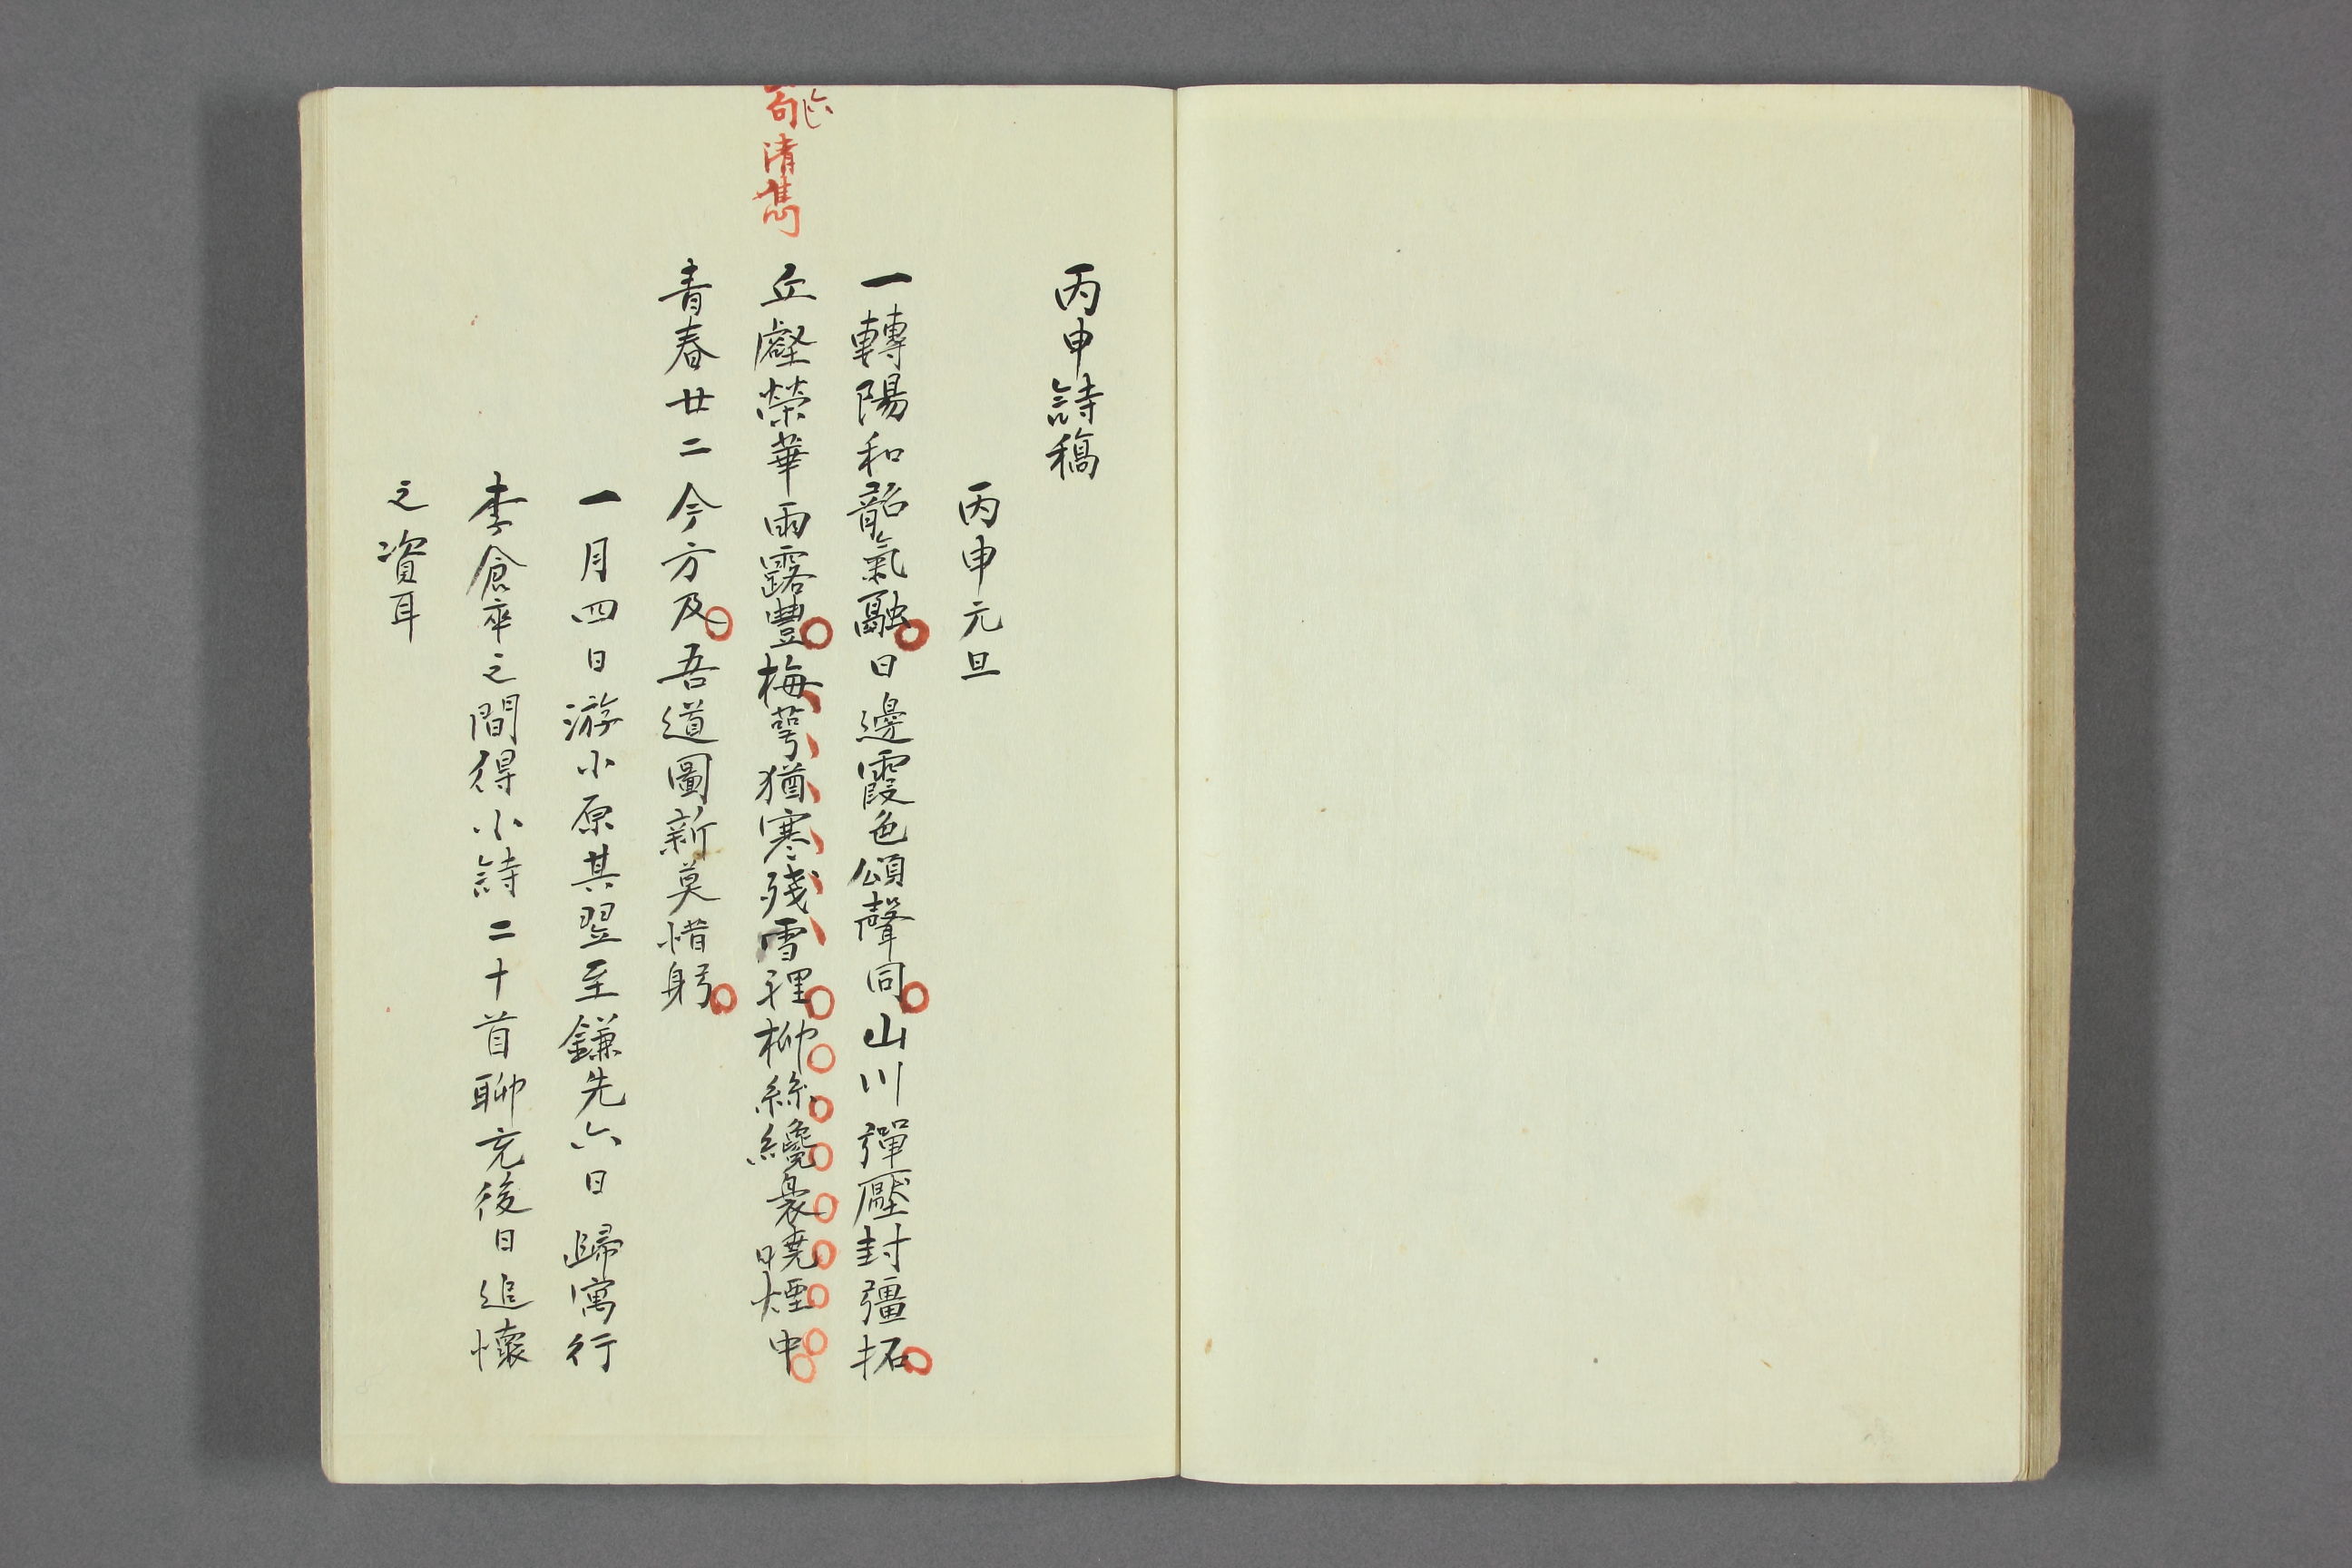 丙申詩稿
丙申元旦
一轉陽和韶氣融日邊霞色頌聲同山川彈壓封彊拓
丘壑榮華雨露豐梅萼猶寒殘雪裡柳絲纔裊曉煙中
青春廿二今方及吾道圖新莫惜躬
一月四日游小原其翌至鎌先六日歸寓行
李倉卒之間得小詩二十首聊充後日追懷
之資耳
句清雋